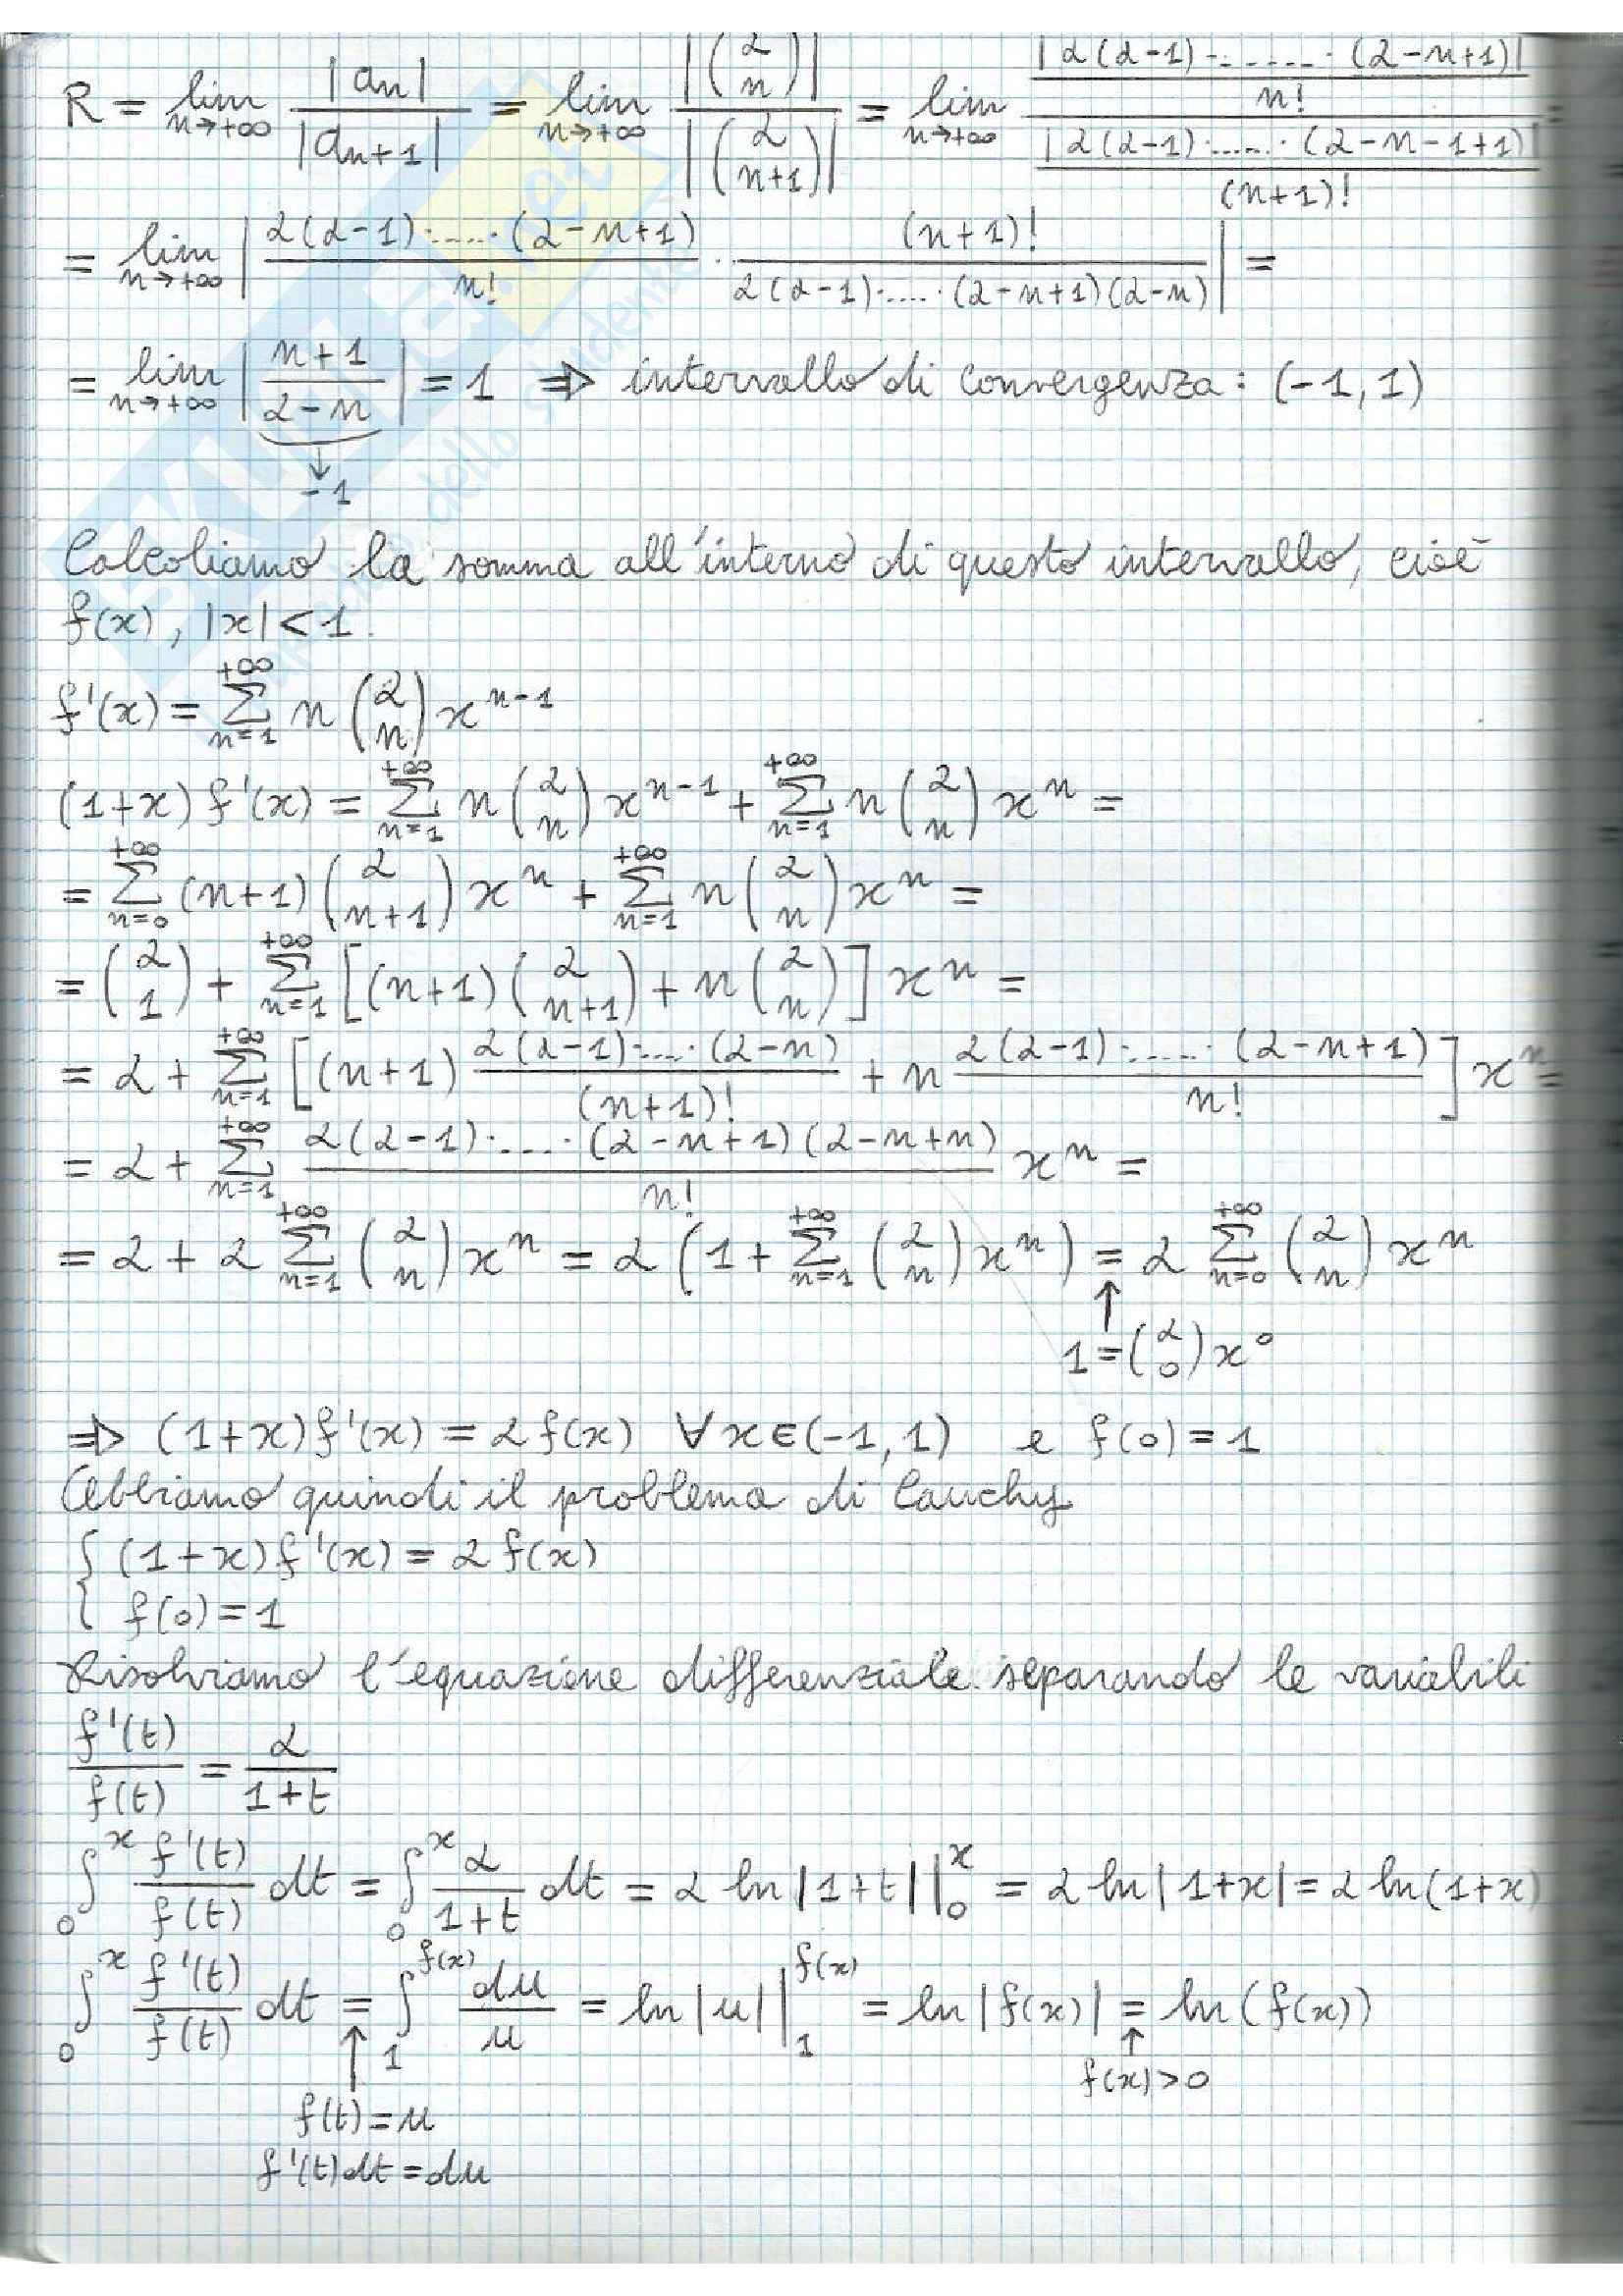 R = lim_{n→+∞} |a_n| / |a_{n+1}| = lim_{n→+∞} |(α over n)| / |(α over n+1)| = lim_{n→+∞} (|α(α-1)·.....·(α-n+1)| / n!) / (|α(α-1)·.....·(α-n-1+1)| / (n+1)!) =
= lim_{n→+∞} | α(α-1)·....·(α-n+1) / n! · (n+1)! / α(α-1)·....·(α-n+1)(α-n) | =
= lim_{n→+∞} | (n+1) / (α-n) | = 1 ⇒ intervallo di convergenza: (-1,1)
↓
-1
Calcoliamo la somma all'interno di questo intervallo, cioè
f(x), |x| < 1.
f'(x) = Σ_{n=1}^{+∞} n (α over n) x^{n-1}
(1+x) f'(x) = Σ_{n=1}^{+∞} n (α over n) x^{n-1} + Σ_{n=1}^{+∞} n (α over n) x^n =
= Σ_{n=0}^{+∞} (n+1) (α over n+1) x^n + Σ_{n=1}^{+∞} n (α over n) x^n =
= (α over 1) + Σ_{n=1}^{+∞} [(n+1) (α over n+1) + n (α over n)] x^n =
= α + Σ_{n=1}^{+∞} [(n+1) α(α-1)·...·(α-n) / (n+1)! + n α(α-1)·....·(α-n+1) / n!] x^n =
= α + Σ_{n=1}^{+∞} α(α-1)·...·(α-n+1)(α-n+n) / n! x^n =
= α + α Σ_{n=1}^{+∞} (α over n) x^n = α (1 + Σ_{n=1}^{+∞} (α over n) x^n) = α Σ_{n=0}^{+∞} (α over n) x^n
↑
1 = (α over 0) x^0
⇒ (1+x) f'(x) = α f(x) ∀ x ∈ (-1,1) e f(0) = 1
Abbiamo quindi il problema di Cauchy
{ (1+x) f'(x) = α f(x)
f(0) = 1
Risolviamo l'equazione differenziale separando le variabili
f'(t) / f(t) = α / (1+t)
∫_0^x f'(t) / f(t) dt = ∫_0^x α / (1+t) dt = α ln|1+t| |_0^x = α ln|1+x| = α ln(1+x)
∫_0^x f'(t) / f(t) dt = ∫_1^{f(x)} du / u = ln|u| |_1^{f(x)} = ln|f(x)| = ln(f(x))
↑ ↑
f(x) > 0
f(t) = u
f'(t)dt = du